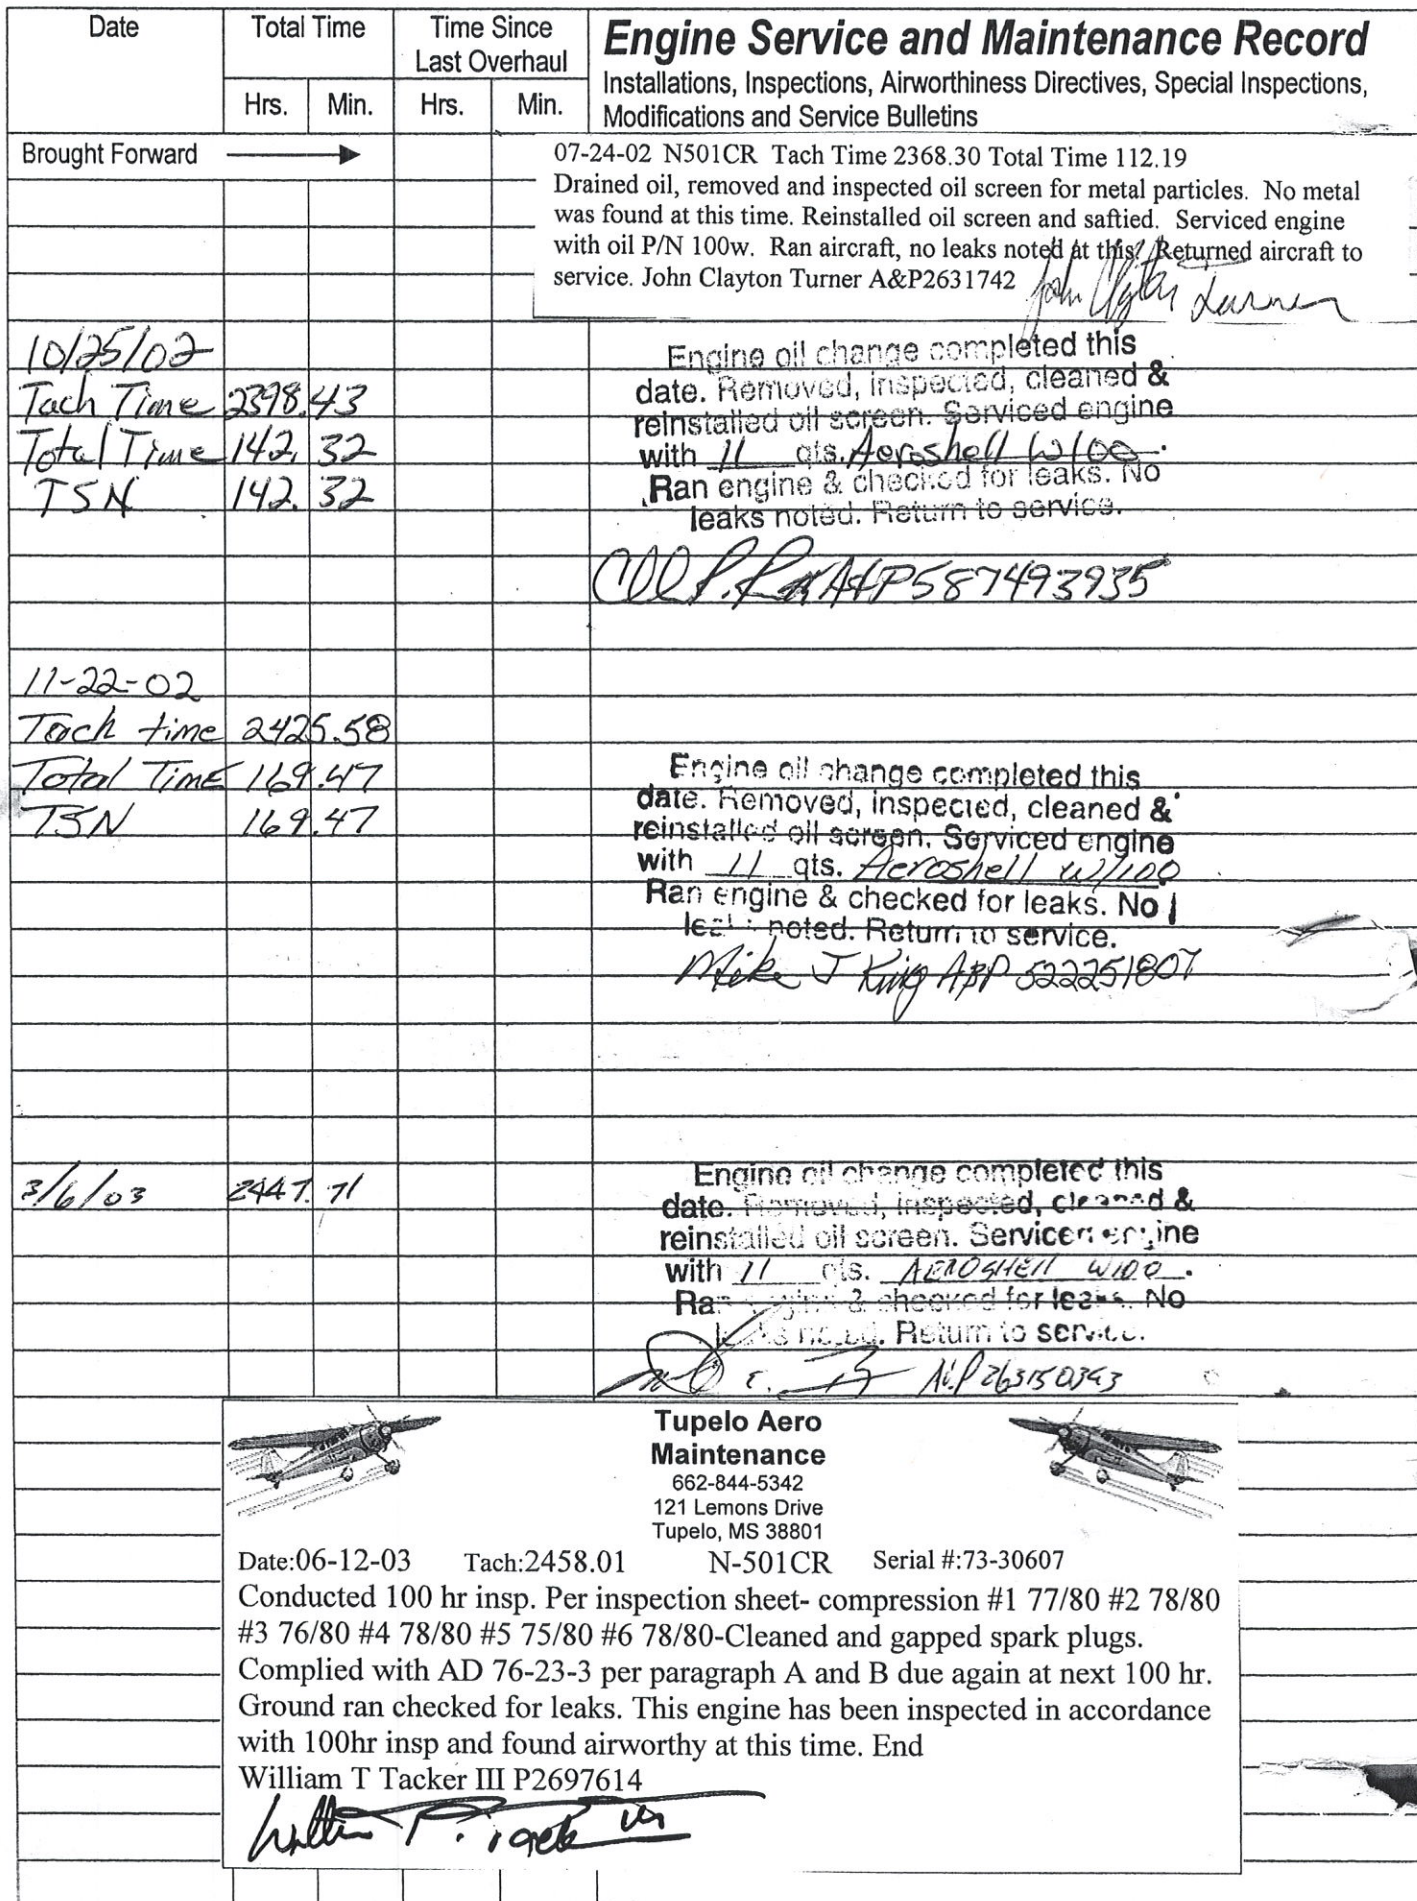 Date Total Time Time Since Last Overhaul Engine Service and Maintenance Record
Hrs. Min. Hrs. Min. Installations, Inspections, Airworthiness Directives, Special Inspections,
Modifications and Service Bulletins
Brought Forward
07-24-02 N501CR Tach Time 2368.30 Total Time 112.19
Drained oil, removed and inspected oil screen for metal particles. No metal
was found at this time. Reinstalled oil screen and saftied. Serviced engine
with oil P/N 100w. Ran aircraft, no leaks noted at this. Returned aircraft to
service. John Clayton Turner A&P2631742 John Clayton Turner
10/25/02
Tach Time 2398.43
Total Time 142. 32
TSN 142. 32
Engine oil change completed this
date. Removed, inspected, cleaned &
reinstalled oil screen. Serviced engine
with 11 qts. Aeroshell W100.
Ran engine & checked for leaks. No
leaks noted. Return to service.
A&P587493935
11-22-02
Tach time 2425.58
Total Time 169.47
TSN 169.47
Engine oil change completed this
date. Removed, inspected, cleaned &
reinstalled oil screen. Serviced engine
with 11 qts. Aeroshell W/100
Ran engine & checked for leaks. No
leaks noted. Return to service.
Mike J King A&P 522251807
3/6/03 2447.71
Engine oil change completed this
date. Removed, inspected, cleaned &
reinstalled oil screen. Serviced engine
with 11 qts. AEROSHELL W100.
Ran engine & checked for leaks. No
leaks noted. Return to service.
A&P 263150343
Tupelo Aero
Maintenance
662-844-5342
121 Lemons Drive
Tupelo, MS 38801
Date:06-12-03 Tach:2458.01 N-501CR Serial #:73-30607
Conducted 100 hr insp. Per inspection sheet- compression #1 77/80 #2 78/80
#3 76/80 #4 78/80 #5 75/80 #6 78/80-Cleaned and gapped spark plugs.
Complied with AD 76-23-3 per paragraph A and B due again at next 100 hr.
Ground ran checked for leaks. This engine has been inspected in accordance
with 100hr insp and found airworthy at this time. End
William T Tacker III P2697614